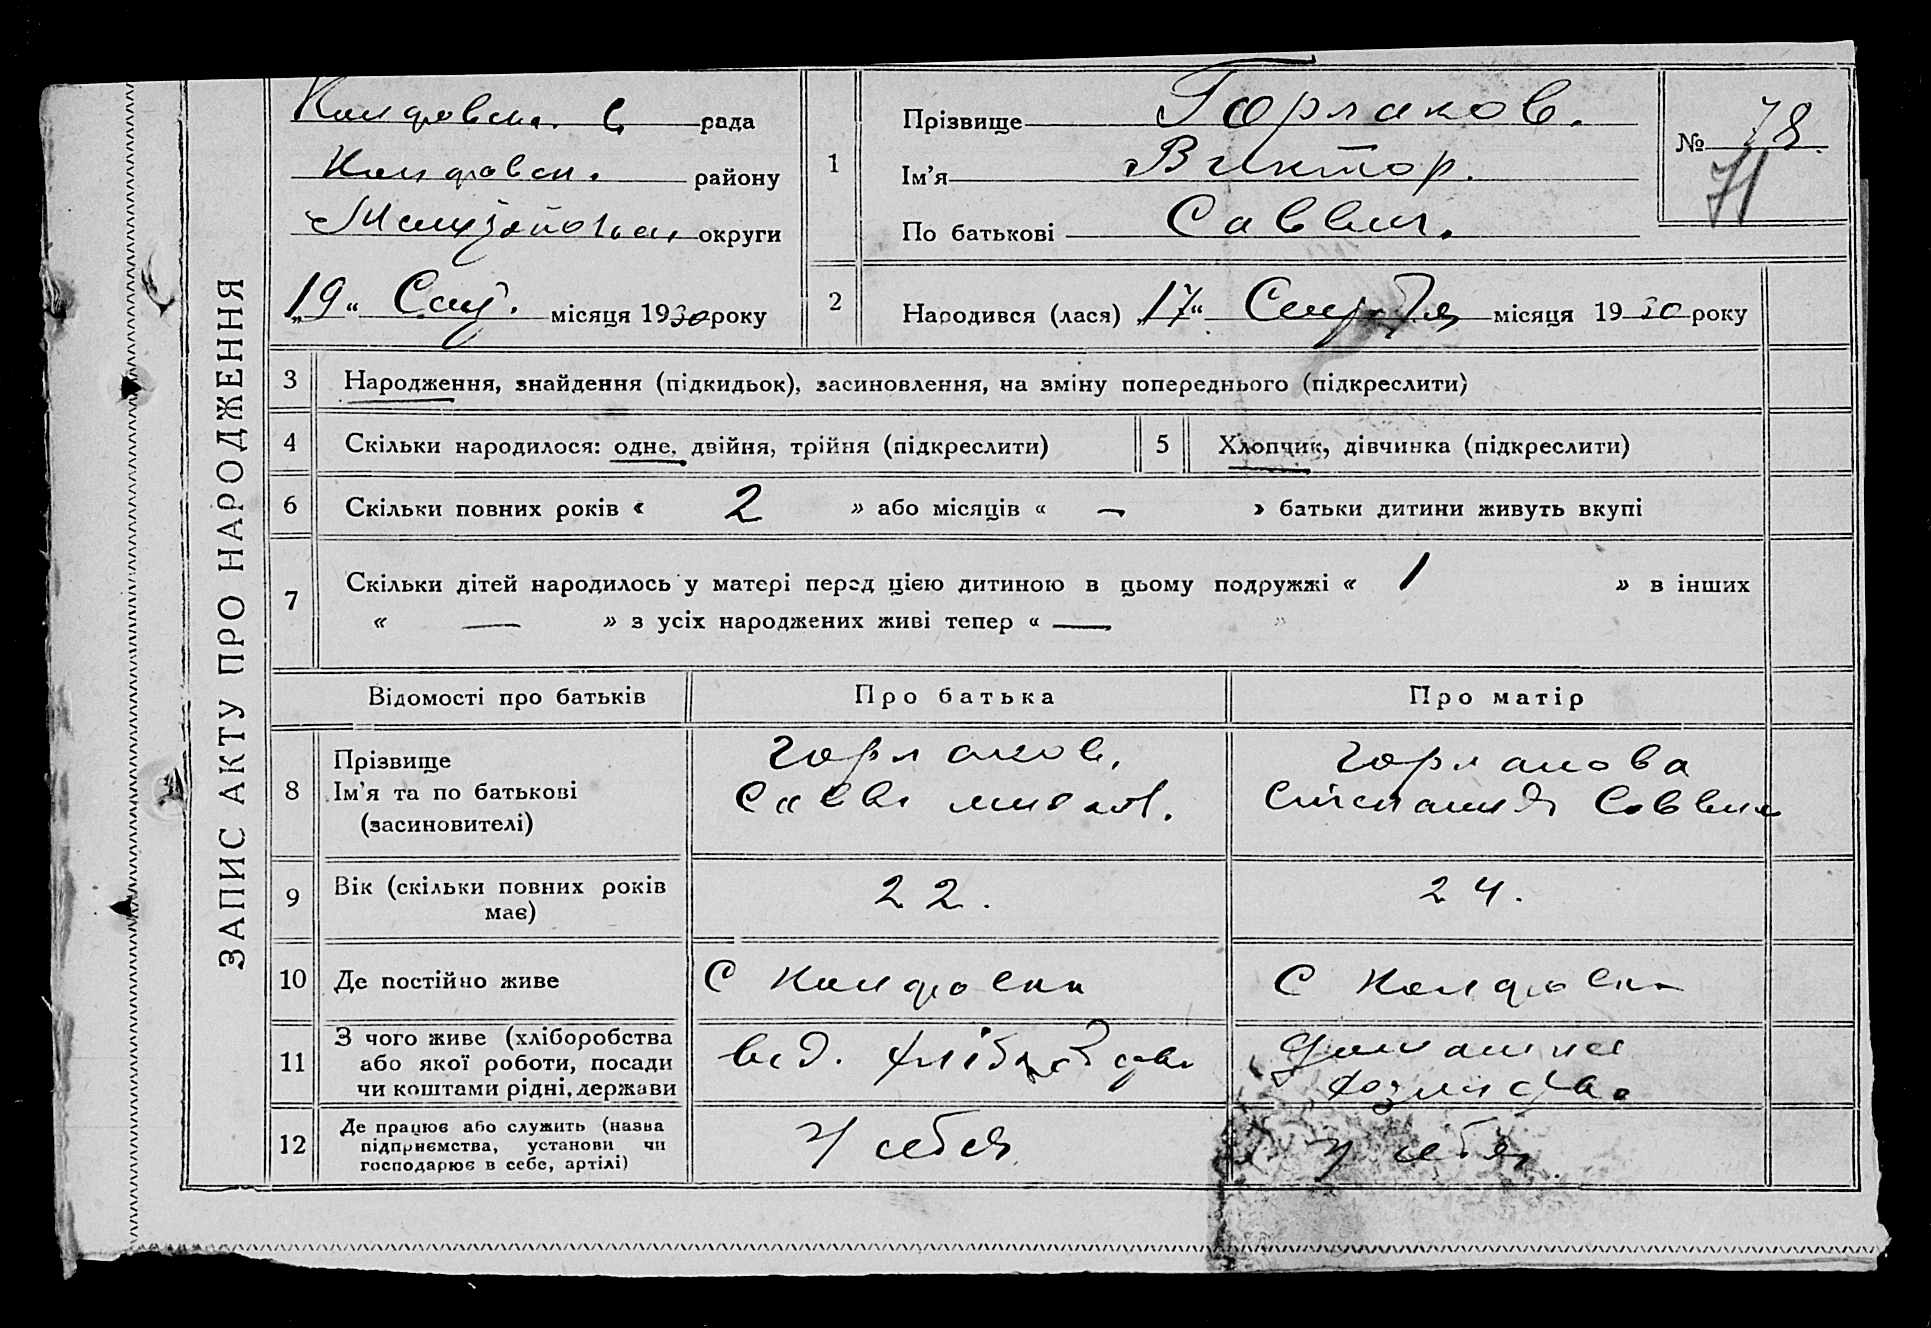 ЗАПИС АКТУ ПРО НАРОДЖЕННЯ
рада
району
округи
„19“ Ску. місяця 1930 року
1
Прізвище Горлаков.
Ім’я Виктор.
По батькові Саввич.
№ 78.
71
2
Народився (лася) „17“ місяця 1930 року
3
Народження, знайдення (підкидьок), засиновлення, на зміну попереднього (підкреслити)
4
Скільки народилося: одне, двійня, трійня (підкреслити)
5
Хлопчик, дівчинка (підкреслити)
6
Скільки повних років « 2 » або місяців « — » батьки дитини живуть вкупі
7
Скільки дітей народилось у матері перед цією дитиною в цьому подружжі « 1 » в інших
« — » з усіх народжених живі тепер « — »
Відомості про батьків
Про батька
Про матір
8
Прізвище
Ім’я та по батькові
(засиновителі)
Горлаков,
Савва
Горлакова
Степанида Саввич
9
Вік (скільки повних років
має)
22.
24.
10
Де постійно живе
С
С
11
З чого живе (хліборобства
або якої роботи, посади
чи коштами рідні, держави
від.
домашнє
12
Де працює або служить (назва
підприємства, установи чи
господарює в себе, артілі)
У себя
У себя